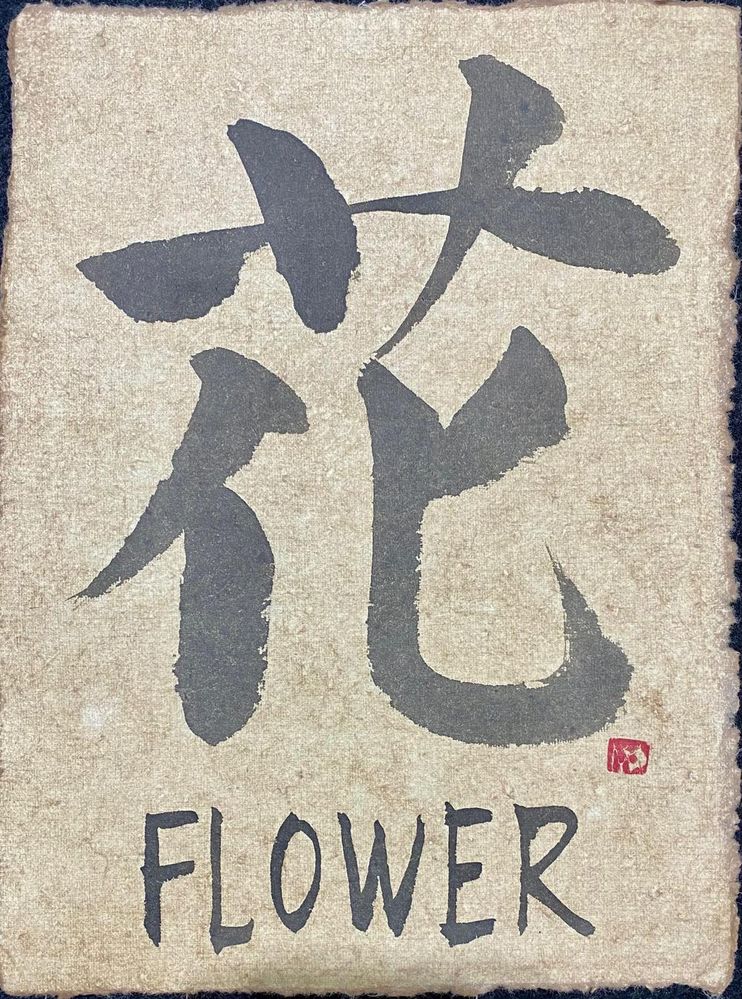 花
FLOWER